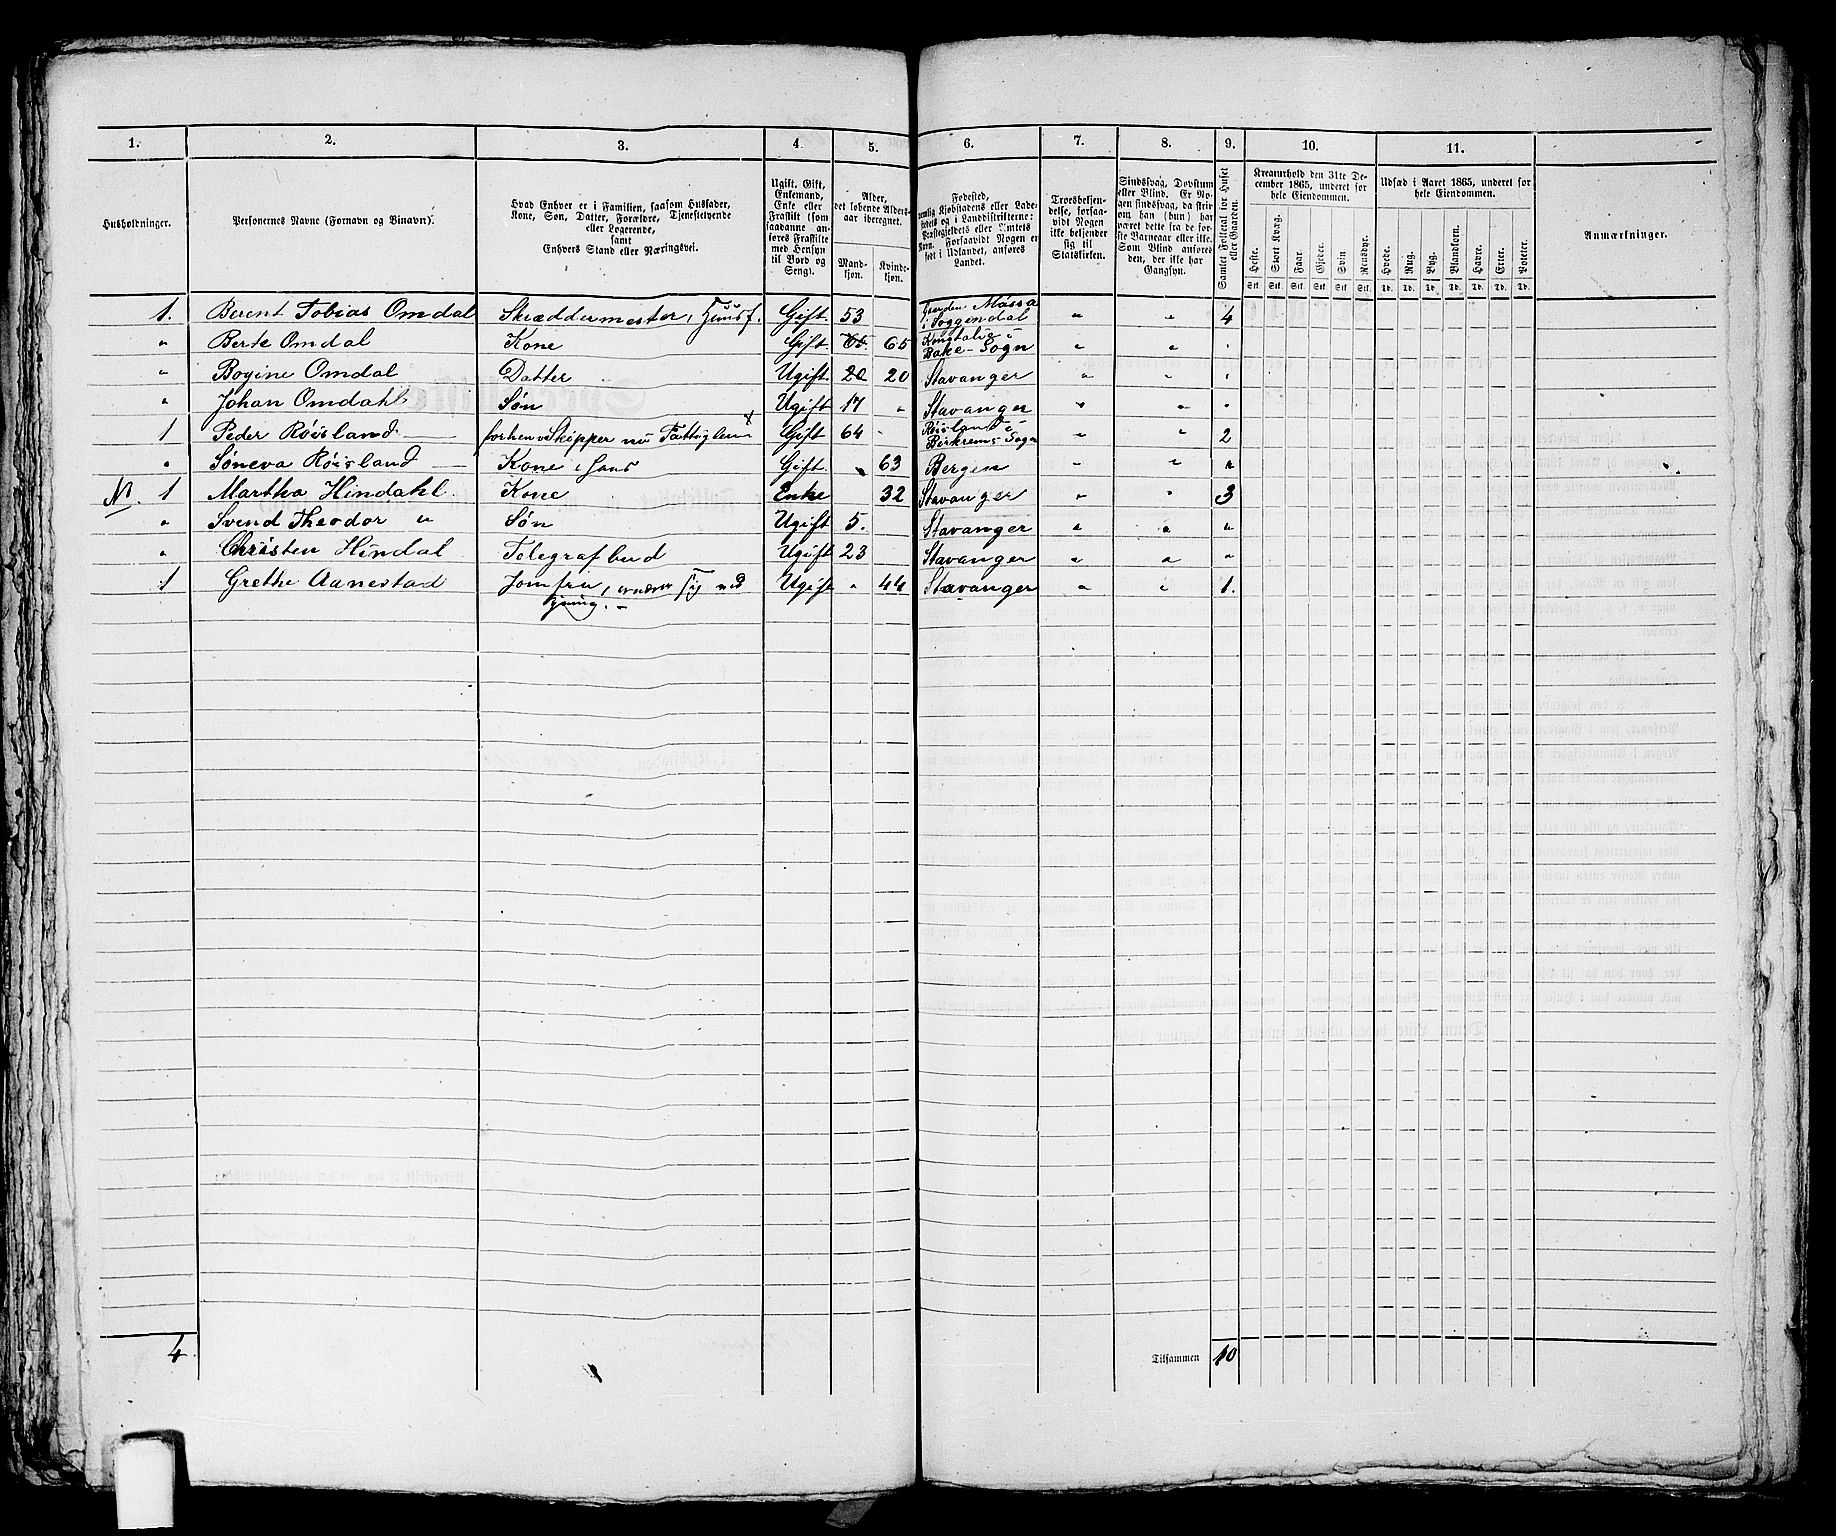 1. 2. 3. 4. 5. 6. 7. 8. 9. 10. 11.
Husholdninger.
Personernes Navne (Fornavn og Binavn).
Hvad Enhver er i Familien, saasom Husfader,
Kone, Søn, Datter, Forældre, Tjenestetyende
eller Logerende,
samt
Enhvers Stand eller Næringsvei.
Ugift, Gift,
Enkemand,
Enke eller
Fraskilt (som
saadanne an-
føres Fraskilte
med Hensyn
til Bord og
Seng).
Alder,
det løbende Alders-
aar iberegnet.
Mand-
kjøn.
Kvinde-
kjøn.
Fødested,
nemlig Kjøbstadens eller Lade-
stedets og i Landdistrikterne:
Præstegjeldets eller Amtets
Navn. Forsaavidt Nogen er
født i Udlandet, anføres
Landet.
Troesbekjen-
delse, forsaa-
vidt Nogen
ikke bekjender
sig til
Statskirken.
Sindssvag, Døvstum
eller Blind. Er No-
gen sindssvag, da skri-
om han (hun) har
været dette fra de før-
ste Barneaar eller ikke.
Som Blind anføres
den, der ikke har
Gangsyn.
Samlet Folketal for Huset
eller Gaarden.
Kreaturhold den 31te De-
cember 1865, anføres for
hele Eiendommen.
Heste. Stort Kvæg. Faar. Gjeder. Svin. Rensdyr.
Stk. Stk. Stk. Stk. Stk. Stk.
Udsæd i Aaret 1865, anføres for
hele Eiendommen.
Hvede. Rug. Byg. Blandkorn. Havre. Erter. Poteter.
Td. Td. Td. Td. Td. Td. Td.
Anmærkninger.
1. Berent Tobias Omdal Skræddermester, Huusf. Gift. 53 Mossa i Soggendal " " 4
" Berte Omdal Kone Gift 65. 65 Bake-Sogn " "
" Bogine Omdal Datter Ugift. 20 20 Stavanger " "
" Johan Omdahl Søn Ugift 17 " Stavanger " "
1 Peder Röisland forhenv Skipper nu Fattiglem Gift 64 - Röisland i Birkrems Sogn " " 2
" Søneva Röisland Kone Gift. " 63 Bergen " " "
N. 1 Martha Hindahl. Kone Enke 32 Stavanger " " 3
" Svend Theodor " Søn Ugift 5. Stavanger " " "
" Christen Hindal Telegrafbud Ugift 23 Stavanger " " "
1 Grethe Aanestad Jomfru, ernærer sig ved Ugift " 44 Stavanger " " 1.
Syning. -
4
Tilsammen 10